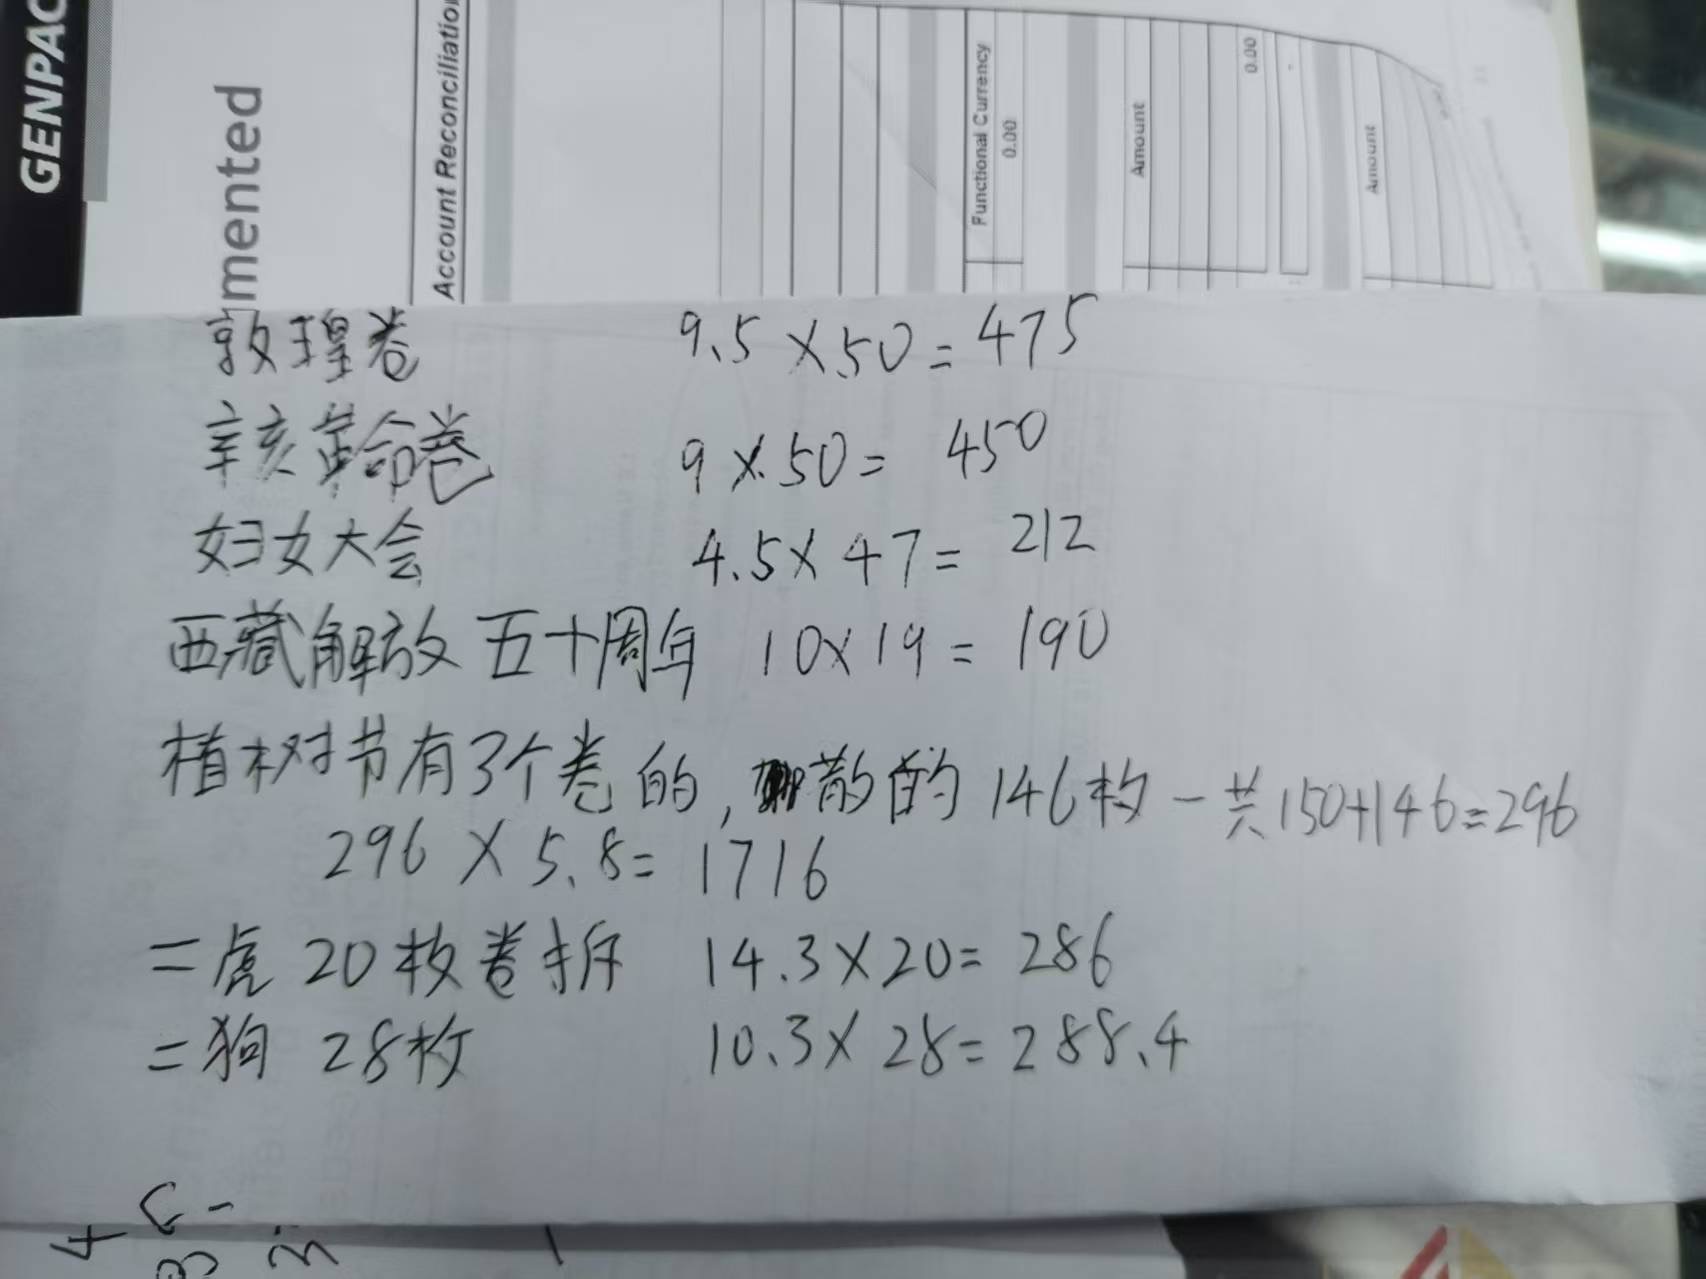 GENPAC
mented
Account Reconciliatio
Functional Currency
0.00
Amount
0.00
Amount
敦煌卷 9.5×50=475
辛亥革命卷 9×50=450
妇女大会 4.5×47=212
西藏解放五十周年 10×19=190
植树节有3个卷的,散的146枚一共150+146=296
296×5.8=1716
二虎 20枚卷拆 14.3×20=286
二狗 28枚 10.3×28=288.4